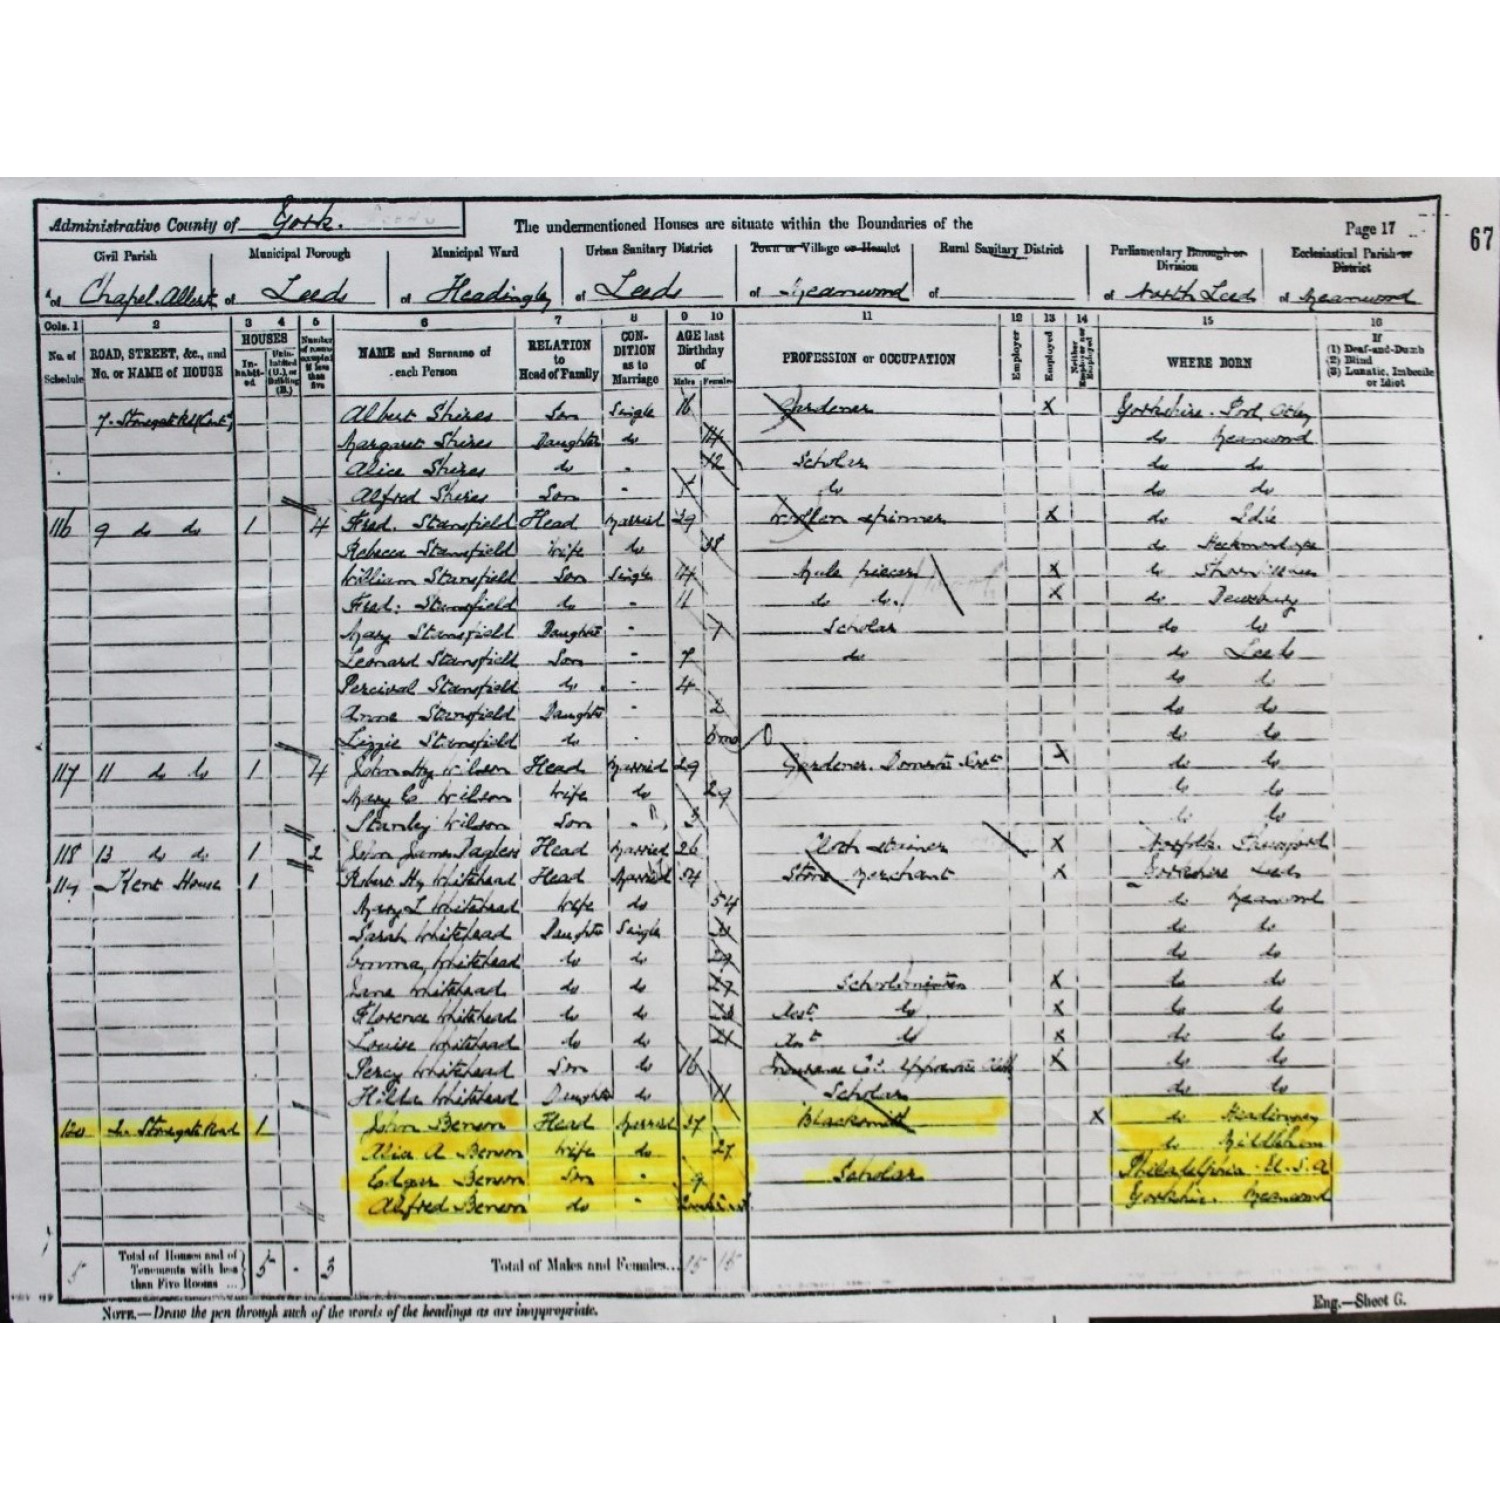 Administrative County of York.
The undermentioned Houses are situate within the Boundaries of the
Page 17
67
Civil Parish Municipal Borough Municipal Ward Urban Sanitary District Town or Village or Hamlet Rural Sanitary District Parliamentary Borough or Division Ecclesiastical Parish or District
of Chapel Allert of Leeds of Headingley of Leeds of Meanwood of of North Leeds of Meanwood
Cols. 1 2 3 4 5 6 7 8 9 10 11 12 13 14 15 16
No. of Schedule ROAD, STREET, &c., and No. or NAME of HOUSE HOUSES In-habit-ed Unin-habited (U.), or Building (B.) Number of rooms occupied if less than five NAME and Surname of each Person RELATION to Head of Family CON-DITION as to Marriage AGE last Birthday of Males Females PROFESSION or OCCUPATION Employer Employed Neither Employer nor Employed WHERE BORN If (1) Deaf-and-Dumb (2) Blind (3) Lunatic, Imbecile or Idiot
7. Stonegate Rd (Cont) Albert Shires Son Single 16 Gardener X Yorkshire. Pool, Otley
Margaret Shires Daughter do 14 do Meanwood
Alice Shires do - 12 Scholar do do
Alfred Shires Son - do do do
116 9 do do 1 4 Fred. Stansfield Head Married 39 Woollen Spinner X do Idle
Rebecca Stansfield Wife do 38 do Heckmondwike
William Stansfield Son Single 14 Mule piecer X do
Fred: Stansfield do - 11 do do. X do Dewsbury
Mary Stansfield Daughter - Scholar do do
Leonard Stansfield Son - 7 do do Leeds
Percival Stansfield do - 4 do do
Anne Stansfield Daughter - 2 do do
Lizzie Stansfield do - 6 mo do do
117 11 do do 1 4 John Hy Wilson Head Married 29 Gardener. Domestic Servt X do do
Mary E Wilson Wife do 29 do do
Stanley Wilson Son - 3 do do
118 13 do do 1 2 John James Head Married 26 Cloth X Norfolk.
119 Kent House 1 Robert Hy Whitehead Head Married 54 Stone Merchant X Yorkshire Leeds
Mary L Whitehead Wife do 54 do Meanwood
Sarah Whitehead Daughter Single do do
Emma Whitehead do do do do
Jane Whitehead do do 27 Schoolmistress X do do
Florence Whitehead do do Asst. do X do do
Louise Whitehead do do 21 Asst do X do do
Percy Whitehead Son do 16 Insurance Co. Apprentice Clk X do do
Hilda Whitehead Daughter do 11 Scholar do do
120 Stonegate Road 1 John Benson Head Married 37 Blacksmith X do Headingley
Alice A Benson Wife do 27 do
Edgar Benson Son - 9 Scholar Philadelphia U.S.A
Alfred Benson do - Yorkshire. Meanwood
5 Total of Houses and of Tenements with less than Five Rooms ... 5 - 3 Total of Males and Females... 15 15
NOTE.—Draw the pen through such of the words of the headings as are inappropriate.
Eng.—Sheet G.